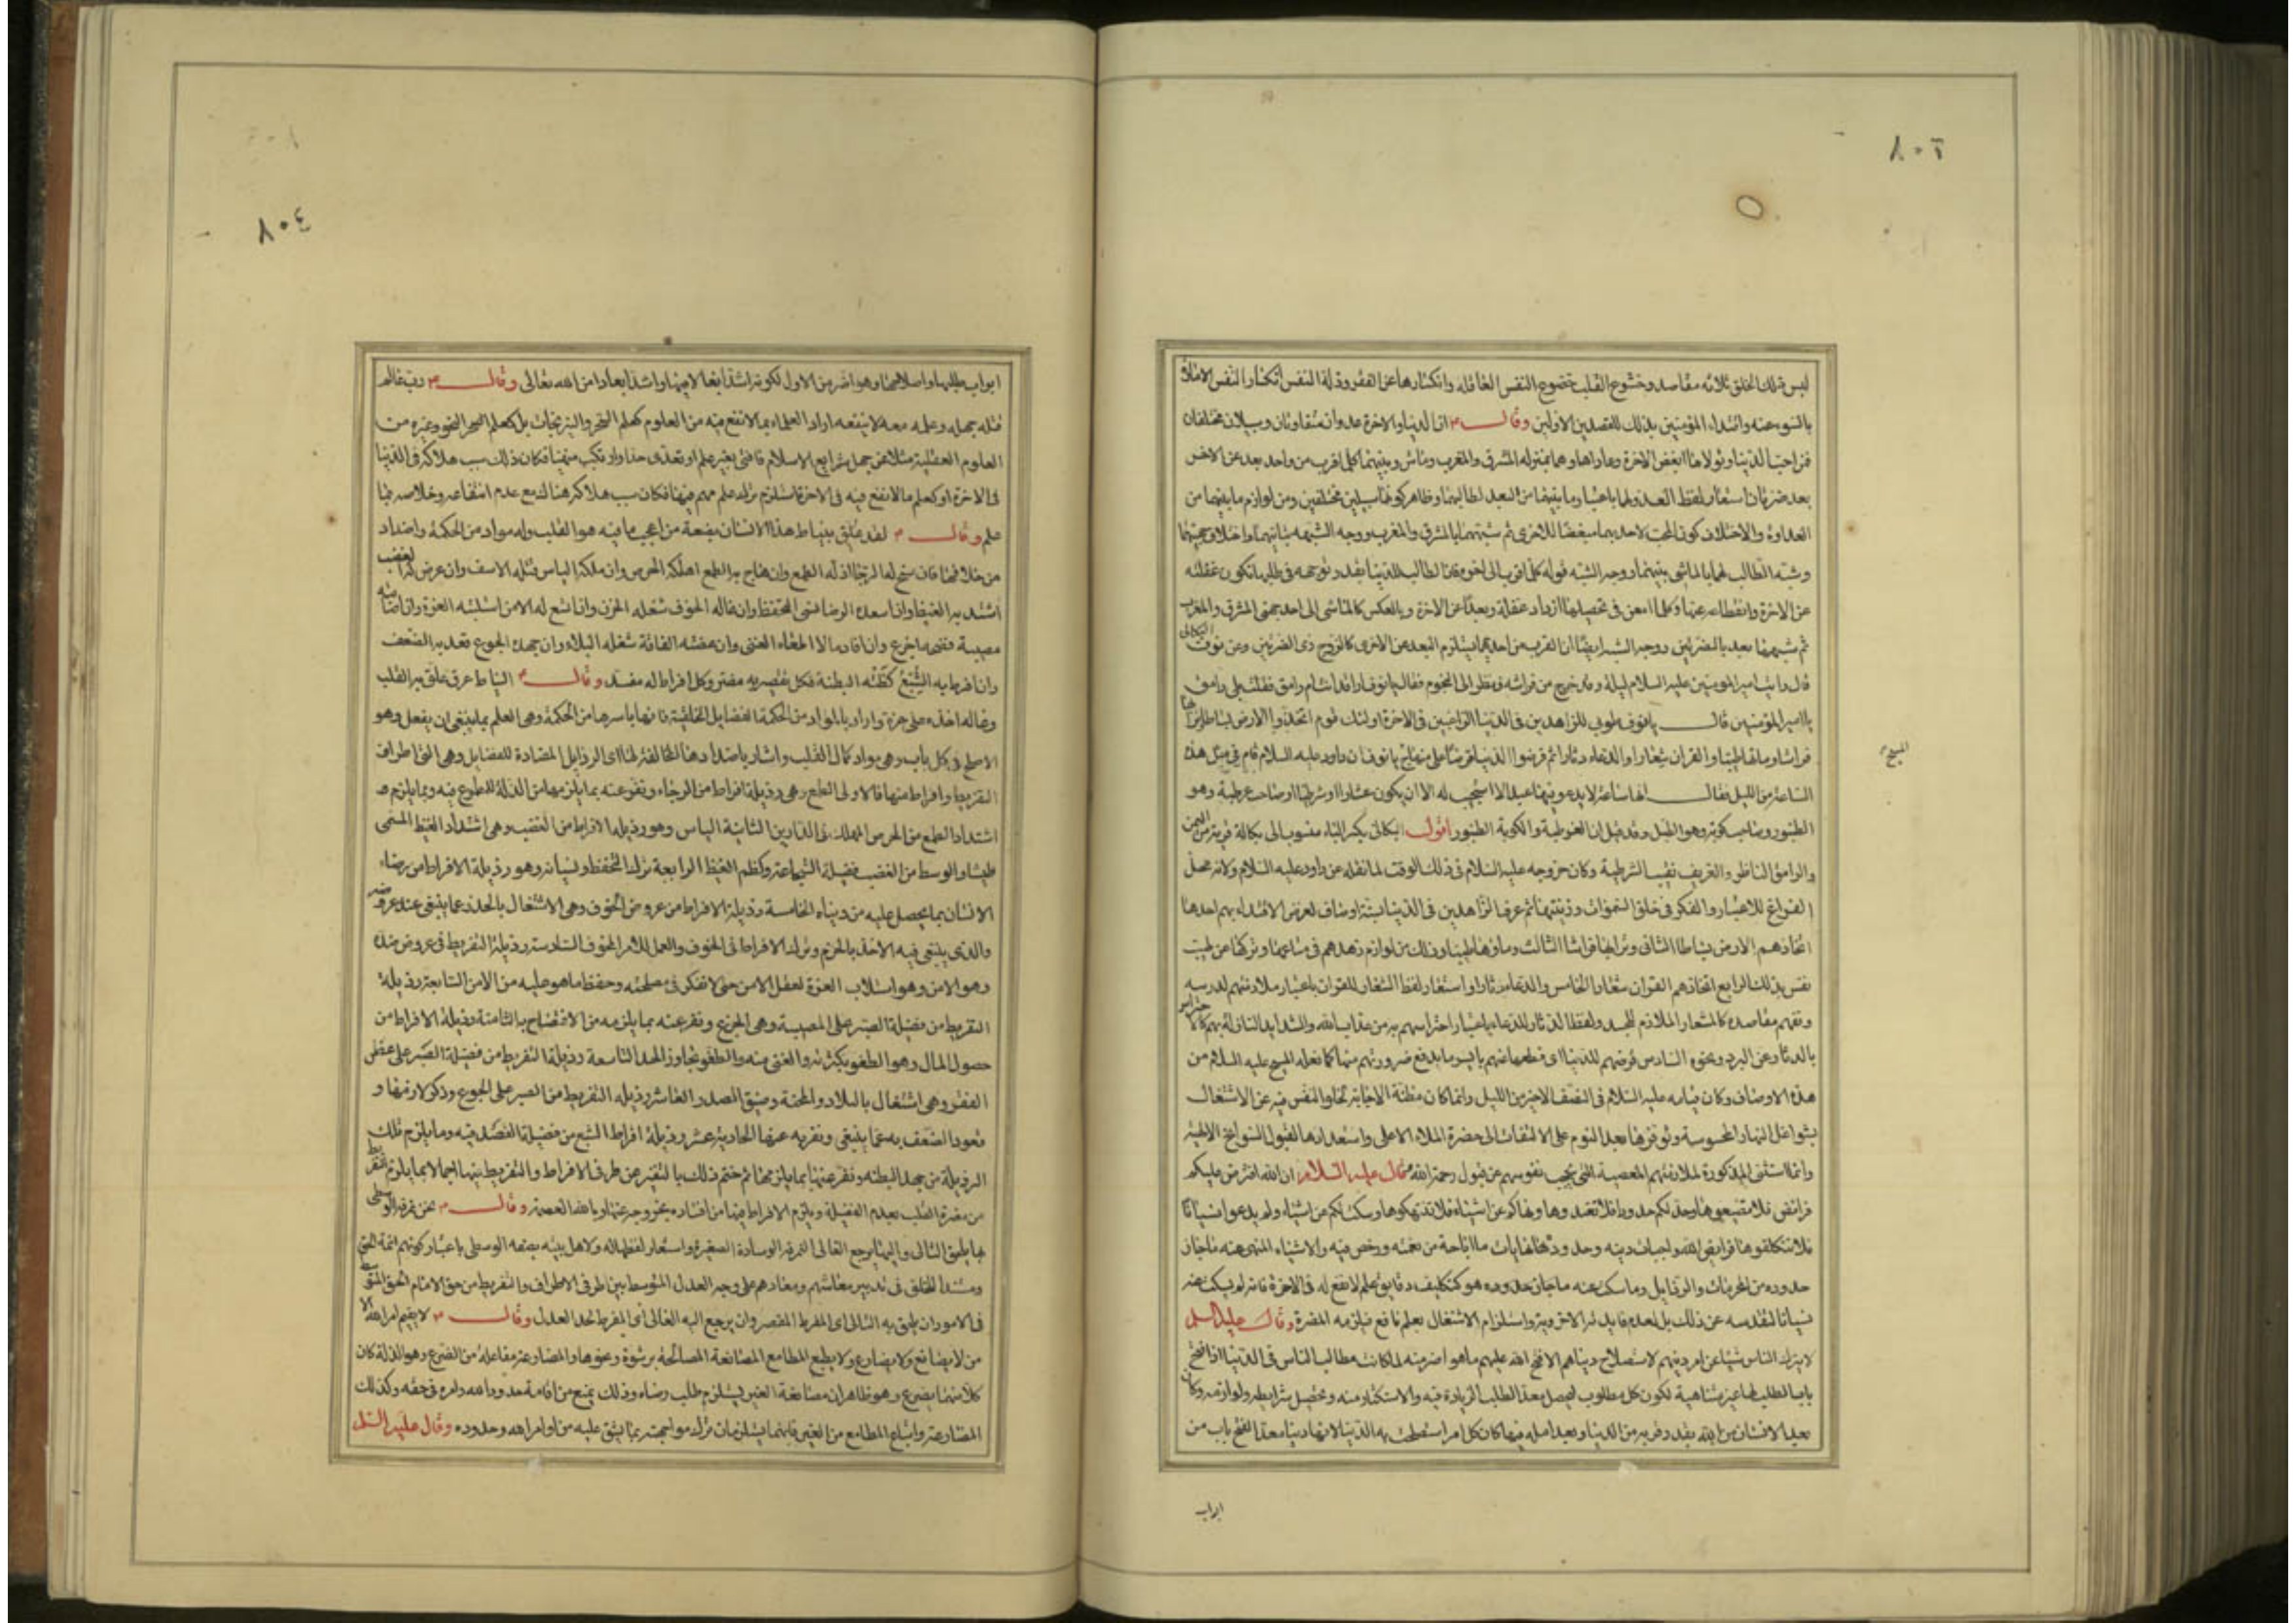 ٨٠٣
ليس تلك الخلق ثلاثه مقاصد وخشوع القلب خضوع النفس الغافله وانكسارها عن الفقر وذلة النفس انكسار النفس الامارة
بالسوء عنه واقتداء المؤمنين بذلك للقصدين الاولين وقالـــ م ان الدنيا والاخرة عدوان متفاوتان وسبيلان مختلفان
فمن احب الدنيا وتولاها ابغض الاخرة وعاداها وهما بمنزله المشرق والمغرب وماش وبينهما كلما قرب من واحد بعد عن الاخر
بعد ضرتان استعار لفظ العدو لهما باعتبار ما بينهما من البعد لطالبهما وظاهر كونهما سبيلين مختلفين ومن لوازم ما بينهما من
العداوة والاختلاف كون المحب لاحديهما مبغضا للاخرى ثم شبههما بالمشرق والمغرب ووجه الشبه تباينهما واختلاف جهتيهما
وشبه الطالب لهما بالماشى بينهما ووجه الشبه قوله كلما قرب الى اخره فان الطالب للدنيا بقدر توجهه فى طلبها تكون غفلته
عن الاخرة وانقطاعه عنها وكلما امعن فى تحصيلها ازداد غفلة وبعدا عن الاخرة وبالعكس كالماشى الى احد جهتى المشرق والمغرب
ثم شبههما بعد بالضرتين ووجه الشبه ايضا ان القرب من احديهما يستلزم البعد من الاخرى كالزوج ذى الضرتين وعن نوف البكالى
قال رايت امير المومنين عليه السلام ليلة وقد خرج من فراشه فنظر الى النجوم فقال يا نوف اراقد انت ام رامق فقلت بلى رامق
يا امير المؤمنين قالـــ يا نوف طوبى للزاهدين فى الدنيا الراغبين فى الاخرة اولئك قوم اتخذوا الارض بساطا وترابها
فراشا وماءها طيبا والقران شعارا والدعاء دثارا ثم قرضوا الدنيا قرضا على منهاج يا نوف ان داود عليه السلام قام فى مثل هذه
المسيح
الساعة من الليل فقالـــ انها ساعة لا يدعو فيها عبد الا استجيب له الا ان يكون عشارا او شرطيا او صاحب عرطبة وهو
الطنبور وصاحب كوبة وهو الطبل وقد قيل ان العرطبة والكوبة الطنبور اقول البكالى بكسر الباء منسوب الى بكالة قرية من اليمن
والرامق الناظر والعريف نقيب الشرطية وكان خروجه عليه السلام فى ذلك الوقت لما نقله عن داود عليه السلام ولانه محل
الفراغ للاعتبار والفكر فى خلق السموات وزينتها ثم عرف الزاهدين فى الدنيا بستة اوصاف لغرض الاقتداء بهم احدها
اتخاذهم الارض بساطا الثانى وترابها فراشا الثالث وماءها طيبا وذلك من لوازم زهدهم فى متاعها وتركها عن طيب
نفس بذلك الرابع اتخاذهم القران شعارا الخامس والدعاء دثارا واستعار لفظ الشعار للقران باعتبار ملازمتهم لدرسه
وتفهم مقاصده كالشعار الملازم للجسد ولفظ الدثار للدعاء باعتبار احتراسهم به من عذاب الله والشدايد النازلة بهم كالاحتراس
بالدثار عن البرد ونحوه السادس قرضهم للدنيا اى قطعها عنهم باليسر مما يدفع ضرورتهم منها كما فعله المسيح عليه السلام من
هذه الاوصاف وكان قيامه عليه السلام فى النصف الاخير من الليل وانما كان مظنة الاجابة لخلو النفس فيه عن الاشتغال
بشواغل النهار المحسوسة وتوفرها بعد النوم على الالتفات الى حضرة الملاء الاعلى واستعدادها لقبول السوانح الالهية
وانما استثنى المذكورة لملازمتهم المعصية التى تحجب نفوسهم عن قبول رحمة الله وقال عليه السلام ان الله افترض عليكم
فرائض فلا تضيعوها وحد لكم حدودا فلا تعتدوها ونهاكم عن اشياء فلا تنتهكوها وسكت لكم عن اشياء ولم يدعها نسيانا
فلا تتكلفوها فرايض الله واجبات دينه وحدوده نهايات ما اباحه من نعمه ورخص فيه والاشياء المنهى عنه ما جاز
حدوده من المحرمات والرذايل وما سكت عنه ما جاز حدوده هو كتكليف دقايق علم لا نفع له فى الاخرة فانه لم يسكت عنه
نسيانا لتقدسه عن ذلك بل لعدم فايدته الاخروية واستلزام الاشتغال بعلم نافع فيلزمه المضرة وقالـ عليه السلم
لا يترك الناس شيئا من امر دينهم لاستصلاح دنياهم الا فتح الله عليهم ما هو اضر منه لما كانت مطالب الناس فى الدنيا اذا فتح
باب الطلب لها غير متناهية لكون كل مطلوب يحصل بعد الطلب الزيادة فيه والاستكثار منه وتحصيل شرايطه ولوازمه وكان
بعد الانسان من الله بقدر قربه من الدنيا وبعد امله فيها كان كل امر استصلحت به الدنيا لانها دنيا معدا لفتح باب من
ابواب
٨٠٤
ابواب طلبها واصلاحها وهو اضر من الاول لكونه اشد ابعالا منها واشد ابعادا من الله تعالى وقالـــ م رب عالم
قتله جهله وعلمه معه لا ينفعه اراد العلماء بما لا نفع فيه من العلوم كعلم السحر والنيرنجات بل كعلم النحو وغيره من
العلوم العقلية مثلا عمن جهل شرايع الاسلام فافتى بغير علم او تعدى حدا وارتكب منهيا فكان ذلك سبب هلاكه فى الدنيا
فى الاخرة او كعلم ما لا نفع فيه فى الاخرة استلزم ترك علم مهم فيها فكان سبب هلاكه هنالك مع عدم انتفاعه وخلاصه بما
علم وقالـــ م لقد علق بنياط هذا الانسان بضعة من اعجب ما فيه هو القلب وله مواد من الحكمة واضداد
من خلافها فان سنح له الرجا اذله الطمع وان هاج به الطمع اهلكه الحرص وان ملكه الياس قتله الاسف وان عرض له الغضب
اشتد به الغيظ وان اسعده الرضا نسى التحفظ وان غاله الخوف شغله الحزن وان اتسع له الامن استلبته الغرة وان اصابته
مصيبة فضحه الجزع وان افاد مالا اطغاه الغنى وان عضته الفاقة شغله البلاء وان جهده الجوع قعد به الضعف
وان افرط به الشبع كظته البطنة فكل تقصير به مضر وكل افراط له مفسد وقالـــ م النياط عرق علق به القلب
وغاله اخذه على غرة واراد بالمواد من الحكمة الفضايل الخلقية فانها باسرها من الحكمة وهى العلم بما ينبغى ان يفعل وهو
الاصلح فى كل باب وهى مواد كمال القلب واشار باضدادها المخالفة لها الى الرذايل المضادة للفضايل وهى التى اطراف
التفريط والافراط منها فالاولى الطمع وهى رذيلة افراط من الرجاء ونفر عنه بما يلزمها من الذلة للمطموع فيه وبما يلزم من
اشتداد الطمع من الحرص المهلك فى الدارين الثانية الياس وهو رذيلة الافراط من الغضب وهى اشتداد الغيظ المسمى
طيشا والوسط من الغضب فضيلة الشجاعة وكظم الغيظ الرابعة ترك التحفظ ونسيانه وهو رذيلة الافراط من رضاء
الانسان بما يحصل عليه من دنياه الخامسة رذيلة الافراط من عروض الخوف وهى الاشتغال بالحذر عما ينبغى عند عروضه
والذى ينبغى فيه الاخذ بالحزم وترك الافراط فى الخوف والعمل للامر المخوف السادسة رذيلة التفريط فى عروض ضده
وهو الامن وهو استلاب الغرة لعقل الامن حتى لا تفكر فى مصلحته وحفظ ما هو عليه من الامن السابعة رذيلة
التفريط من فضيلة الصبر على المصيبة وهى الجزع ونفر عنه بما يلزمه من الافتضاح بها الثامنة رذيلة الافراط من
حصول المال وهو الطغو بكثرته والغنى منه والطغو تجاوز الحد التاسعة رذيلة التفريط من فضيلة الصبر على عض
الفقر وهى اشتغال بالبلاء والمحنة وضيق الصدر العاشرة رذيلة التفريط من الصبر على الجوع وذكر لازمها و
قعود الضعف به عما ينبغى ونفر به عنها الحادية عشر رذيلة افراط الشبع من فضيلة القصد فيه وما يلزم تلك
الرذيلة من جهد البطنة ونفر عنها بما يلزمها ثم ختم ذلك بالتنفير عن طرفى الافراط والتفريط بينها اجمالا بما يلزم التفريط
من مضرة القلب بعدم الفضيلة ويلزم الافراط فيها من افساده بخروجه عنها وبالله العصمة وقالـــ م نحن نمرقة الوسطى
بها يلحق التالى واليها يرجع الغالى النمرقة الوسادة الصغيرة واستعار لفظها له ولاهل بيته بصفه الوسطى باعتبار كونهم ائمة الحق
ومستندا للخلق فى تدبير معاشهم ومعادهم على وجه العدل المتوسط بين طرفى الافراط والتفريط من حق الامام الحق المتوسط
فى الامور ان يلحق به التالى اى المفرط المقصر وان يرجع اليه الغالى اى المفرط لحد العدل وقالـــ م لا يقيم امر الله الا
من لا يصانع ولا يضارع ولا يطيع المطامع المصانعة المصالحة برشوة ونحوها والمضارعة مفاعلة من الضرع وهو الذلة كان
كلا منهما يضرع وهو ظاهر ان مصانعة الغير يستلزم طلب رضاه وذلك يمنع من اقامة حدود الله وامره فى حقه وكذلك
المضارعة واتباع المطامع من الغير فانهما يستلزمان ترك مواجهته بما يشق عليه من اوامر الله وحدوده وقال عليه السلم